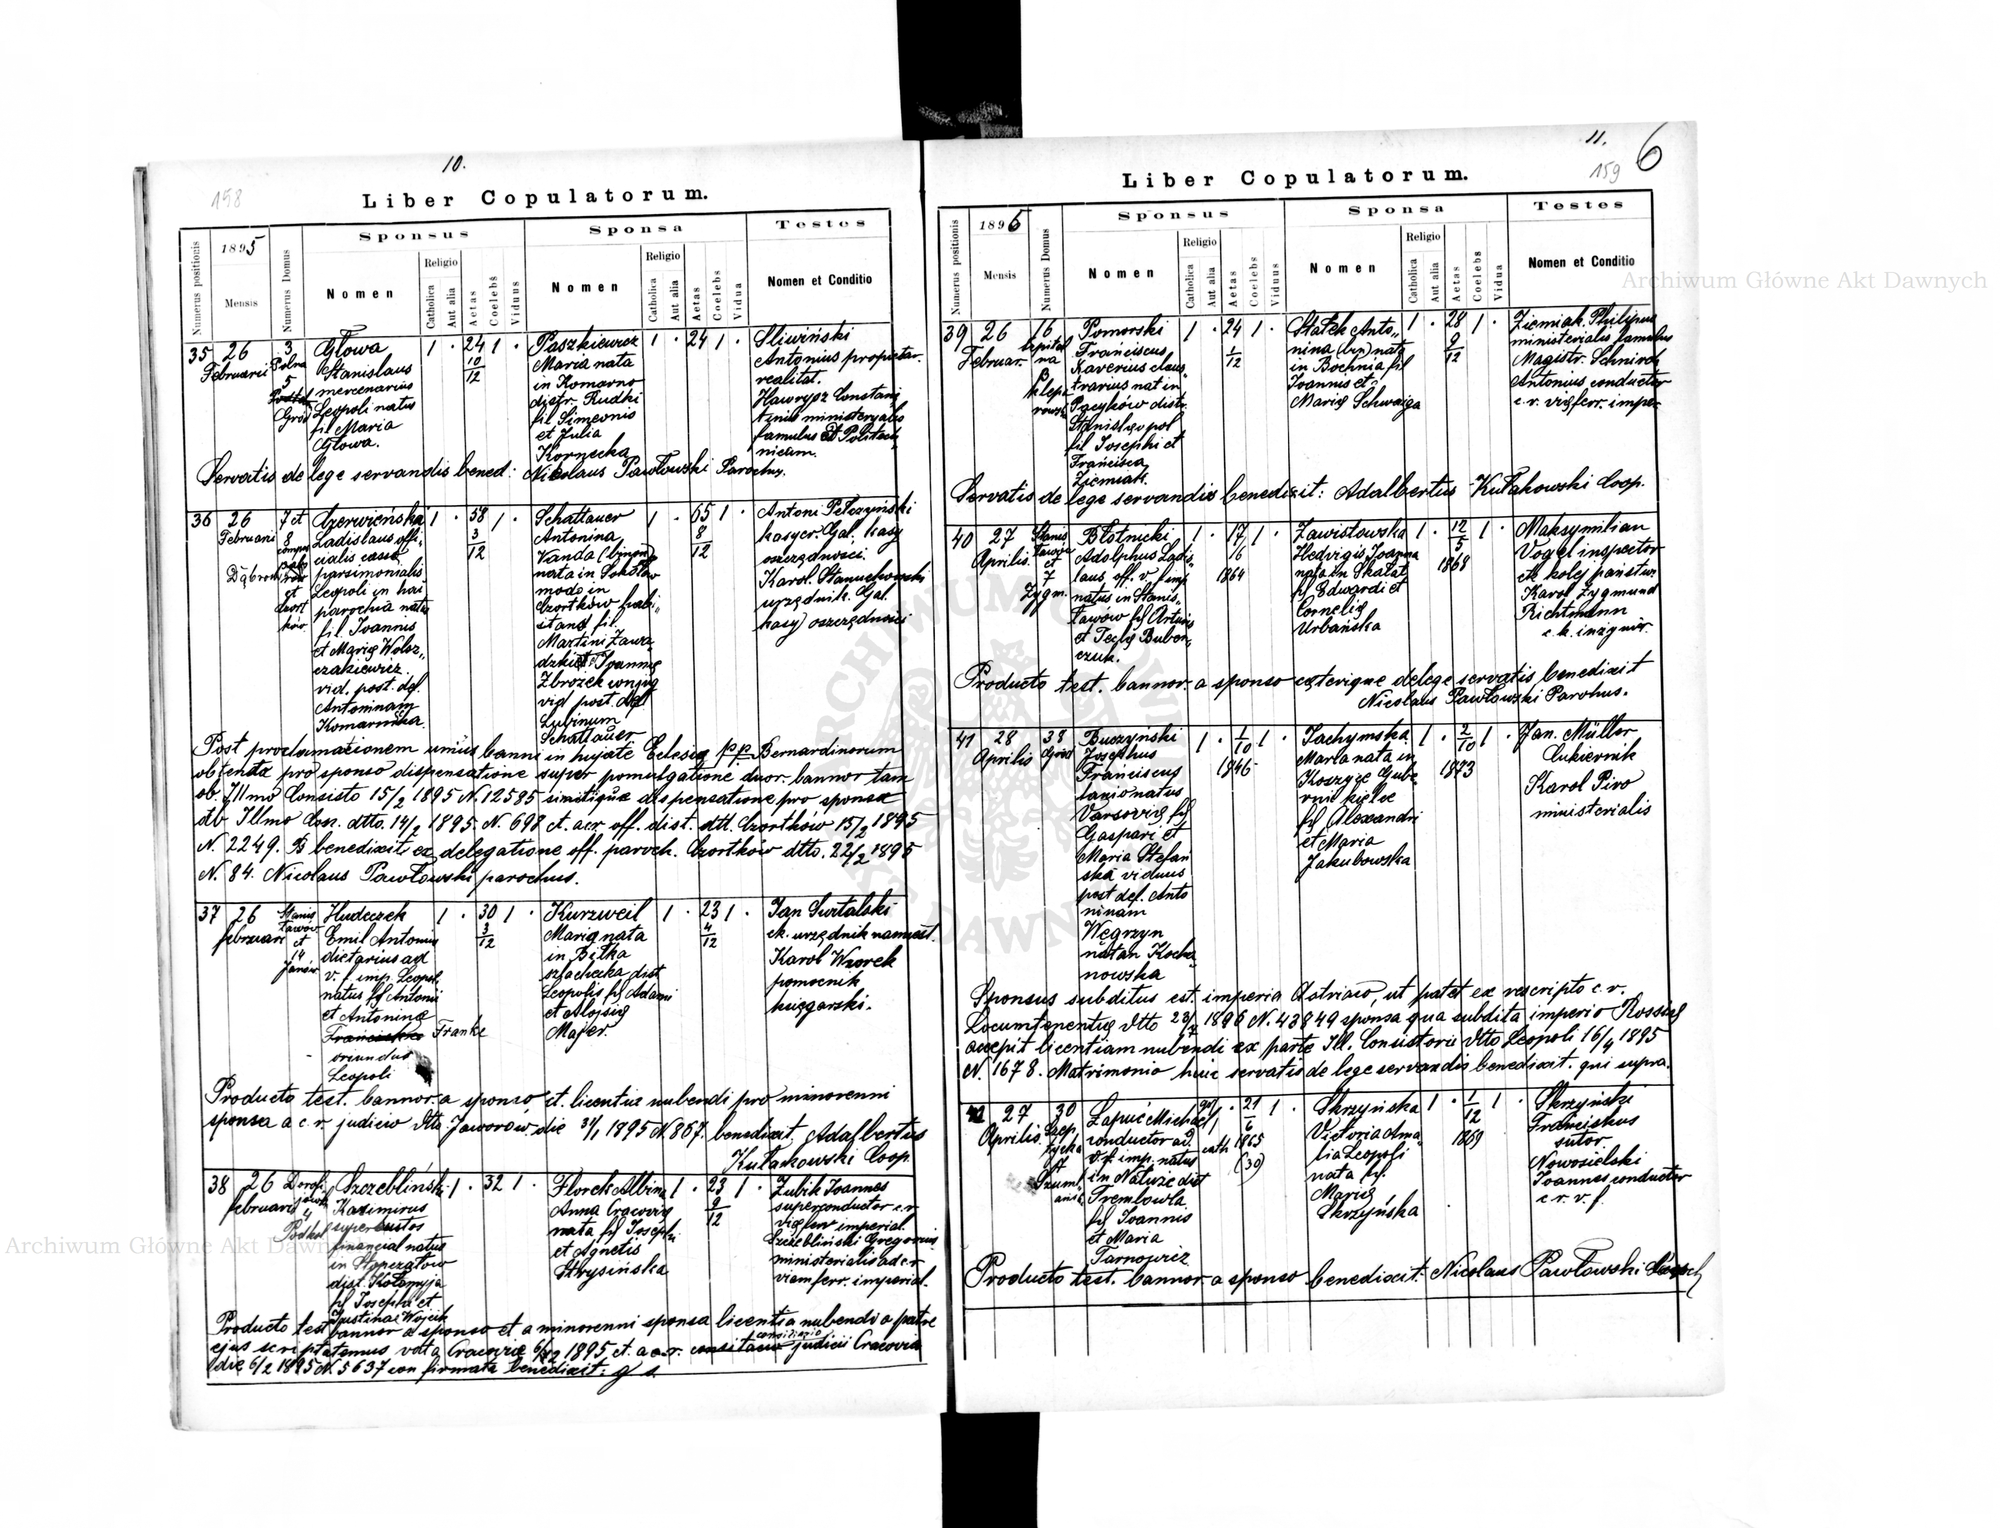 10.
158
Liber Copulatorum.
Numerus positionis
1895
Mensis
Numerus Domus
Sponsus
Nomen
Religio
Catholica
Aut alia
Aetas
Coelebs
Viduus
Sponsa
Nomen
Religio
Catholica
Aut alia
Aetas
Coelebs
Vidua
Testes
Nomen et Conditio
35 26 3 Głowa 1 . 24 1 . Paszkiewicz 1 . 24 1 . Sliwiński
Februarii Polna Stanislaus 10/12 Maria nata Antonius proprietar.
5 mercenarius in Komarno realitat.
Leopoli natus distr. Rudki Hawrysz Constan
Gród fil Maria fil Simeonis tinus ministeryalis
Głowa. et Julia famulus Politech
Kornecka nicum.
Servatis de lege servandis bened: Nikolaus Pawłowski Parochus.
36 26 7 et Czerwieńska 1 . 58 1 . Schattauer 1 . 65 1 . Antoni Pełczyński
Februarii 8 Ladislaus offi- 3/12 Antonina 8/12 kasyer. Gal. kasy
cialis cassa Vanda (binom) oszczędności
Dąbrow parsimonialis nata in Sokołów Karol. Stanuchowski
et Leopoli in hai modo in urzędnik. Gal.
Czort parochia natus Czortków habi- kasy oszczędności
ków fil. Joannis tans fil.
et Mariæ Wolsz- Martini Zawa
czakiewicz dzki et Joannæ
vid. post. def. Zbrożek conjug
Antoninam vid post. def
Komarnicka. Lubinum
Schattauer
Post proclamationem unius banni in hujate Eclesia pp. Bernardinorum
obtenta pro sponso dispensatione super pomulgatione duor. bannor tam
ob. Illmo Consisto 15/2 1895 N. 12585 similique dispensatione pro sponsa
ab Illmo Con. dtto. 14/2 1895. N. 698 et. a c.r. off. dist. dtt. Czortków 15/2 1895
N. 2249. B benedixit ex delegatione off. paroch. Czortków dtto. 22/2 1895
N. 84. Nicolaus Pawłowski parochus.
37 26 Stanis Hudeczek 1 . 30 1 . Kurzweil 1 . 23 1 . Jan Surtalski
februari ławów Emil Antonius 3/12 Maria nata 4/12 ck. urzędnik namiest.
et dietarius ad in Biłka Karol Wzorek
14 v. f. imp. Leopol. szlachecka dist pomocnik
Janów natus fil Antonii Leopolis fil Adami księgarski.
et Antoninæ et Alojsia
Franke Majer.
oriundus
Leopoli
Producto test. bannor. a sponso et. licentia nubendi pro minorenni
sponsa a c. r judicio dtto Jaworów die 31/1 1895 N 867. benedixit. Adalbertus
Kułakowski Coop.
38 26 Szczebliński 1 . 32 1 . Florek Albina 1 . 23 1 . Zubik Joannes
februarii Kazimirus Anna Cracoviæ 9/12 superconductor c.r
4 supercustos nata fil Josephi viæ ferr imperial.
financial natus et Agnetis Szczebliński Gregorius
in Strysińska ministerialis ad c.r
dist. Kołomyja viam ferr. imperial.
fil Josephi et
Justinæ Wójcik
Producto test bannor a sponso et a minorenni sponsa licentia nubendi a patre
ejus scriptotenus data Cracoviæ 6/2 1895. et. a c.r. consiliario judicii Cracovia
die 6/2 1895 N. 5637 confirmata benedixit: q s.
11.
6
159
Liber Copulatorum.
Numerus positionis
1896
Mensis
Numerus Domus
Sponsus
Nomen
Religio
Catholica
Aut alia
Aetas
Coelebs
Viduus
Sponsa
Nomen
Religio
Catholica
Aut alia
Aetas
Coelebs
Vidua
Testes
Nomen et Conditio
39 26 16 Pomorski 1 . 24 1 . Statek Anto- 1 . 28 1 . Ziemiak. Philipus
Februar. Szpital Franciscus 1/12 nina (bn) nata 9/12 ministerialis famulus
na Xaverius claus- in Bochnia fil Magistr. Schnirch
trarius nat in Joannis et Antonius conductor
Pacyków distr. Mariæ Schwaiga c.r. viæ ferr. imper.
Stanislavpol
fil Josephi et
Francisca
Ziemiak.
Servatis de lege servandis benedixit: Adalbertus Kułakowski Coop.
40 27 Stanis Błotnicki 1 . 17 1 . Zawistowska 1 . 12/5 1 . Maksymilian
Aprilis. ławów Adolphus Ladis- 1/6 Hedvigis Joanna Vogel inspector
et laus off. v. f imp 1864 nata in Skałat 1868 ck kolej państw
7 natus in Stanis- fil Edwardi et Karol Zygmund
Zygm. ławów fil Arturis Corneliæ Richtmann
et Teclæ Buben- Urbańska c.k. inżynier.
czuk.
Producto test. bannor. a sponso cęterique de lege servatis benedixit
Nicolaus Pawłowski Parohus.
41 28 38 Buszyński 1 . 1/10 1 . Jachymska 1 . 2/10 1 . Jan. Müller
Aprilis Gród Josephus 1846 Maria nata in 1873 Cukiernik
Franciscus Koszyce Gube- Karol Pivo
natus rnii kielce ministerialis
Varsoviæ fil fil Alexandri
Gaspari et et Maria
Maria Stefań Jakubowska
ska viduus
post def. Anto
ninam
Węgrzyn
natan Kocha-
nowska
Sponsus subditus est. imperia Astriaco, ut patet ex rescripto c.r.
Locumtenentiæ dtto 23/7 1896 N. 43849 sponsa qua subdita imperio Rossiæ
accepit licentiam nubendi ex parte Ill. Consistorii dtto Leopoli 16/4 1895
N. 1678. Matrimonio huic servatis de lege servandis benedixit. qui supra.
42 27 30 Łapuć Michael 1 . 21/6 1 . Skrzyńska 1 . 1/12 1 . Skrzyński
Aprilis. Szep conductor ad cath 1865 Victoria Ama- 1869 Franciskus
tycka v. f. imp. natus (30) lia Leopoli sutor
in Natuże dist nata fil. Nowosielski
Szuml Trembowla Mariæ Joannes conductor
fil Joannis Skrzyńska c.r. v. f.
et Maria
Tarnowicz
Producto test. bannor. a sponso benedixit: Nicolaus Pawłowski
Archiwum Główne Akt Dawnych
Archiwum Główne Akt Dawnych
ARCHIWUM GŁÓWNE AKT DAWNYCH